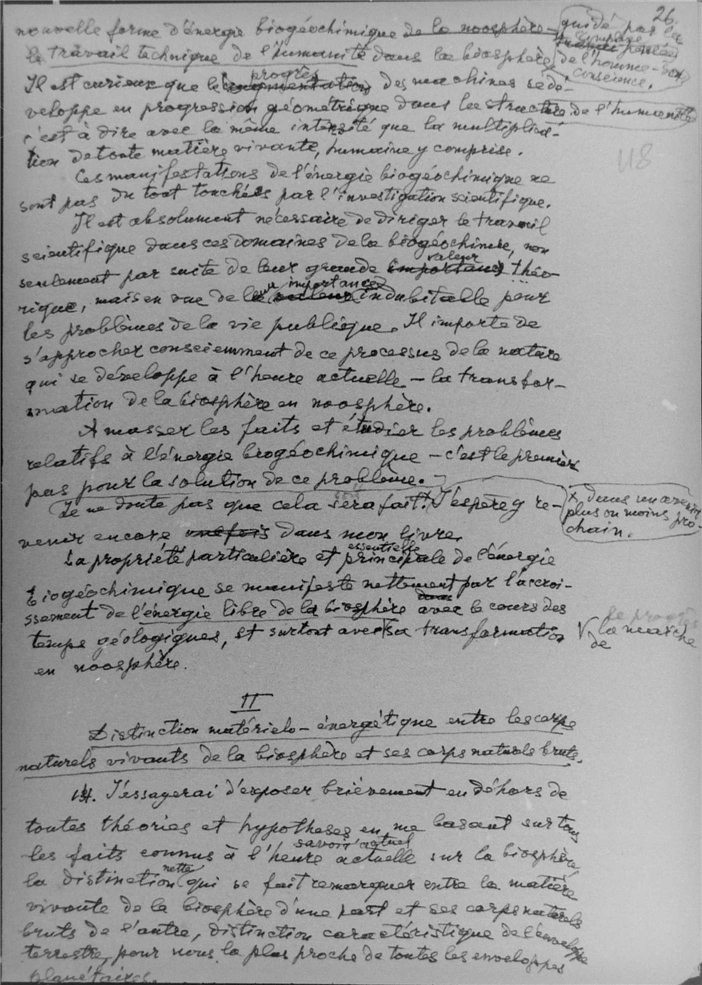 26.
nouvelle forme d'énergie biogéochimique de la noosphère – guidé par la
le travail technique de l'humanité dans la biosphère,
de l'homme – son
conscience.
Il est curieux que le progrès des machines se dé-
veloppe en progression géométrique dans la structure de l'humanité
c'est à dire avec la même intensité que la multiplica-
tion de toute matière vivante, humaine y comprise.
118
Ces manifestations de l'énergie biogéochimique ne
sont pas du tout touchées par l'investigation scientifique.
Il est absolument nécessaire de diriger le travail
scientifique dans ces domaines de la biogéochimie, non
seulement par suite de leur grande valeur théo-
rique, mais en vue de leur importance indubitable pour
les problèmes de la vie publique. Il importe de
s'approcher consciemment de ce processus de la nature
qui se développe à l'heure actuelle – la transfor-
mation de la biosphère en noosphère.
Amasser les faits et étudier les problèmes
relatifs à l'énergie biogéochimique – c'est le premier
pas pour la solution de ce problème.
Je ne doute pas que cela sera fait. J'espère y re-
x, dans un avenir
plus ou moins pro-
chain.
venir encore dans mon livre.
La propriété particulière et essentielle principale de l'énergie
biogéochimique se manifeste nettement par l'accroi-
ssement de l'énergie libre de la biosphère avec le cours des
temps géologiques, et surtout avec sa transformation
le progrès
V la marche
de
en noosphère.
II
Distinction matérielo-énergétique entre les corps
naturels vivants de la biosphère et ses corps naturels bruts.
14. J'essayerai d'exposer brièvement en déhors de
toutes théories et hypothèses en me basant sur tous
les faits connus à l'heure actuelle savoir actuel sur la biosphère
la distinction nette qui se fait remarquer entre la matière
vivante de la biosphère d'une part et ses corps naturels
bruts de l'autre, distinction caractéristique de l'enveloppe
terrestre, pour nous la plus proche de toutes les enveloppes
planétaires.